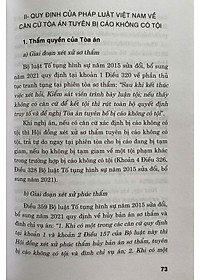 II- QUY ĐỊNH CỦA PHÁP LUẬT VIỆT NAM VỀ
CĂN CỨ TÒA ÁN TUYÊN BỊ CÁO KHÔNG CÓ TỘI
1. Thẩm quyền của Tòa án
a) Giai đoạn xét xử sơ thẩm
Bộ luật Tố tụng hình sự năm 2015 sửa đổi, bổ
sung năm 2021 quy định tại khoản 1 Điều 320 về phần
thủ tục tranh tụng tại phiên tòa sơ thẩm: "Sau khi kết thúc
việc xét hỏi, Kiểm sát viên trình bày luận tội; nếu thấy
không có căn cứ để kết tội thì rút toàn bộ quyết định
truy tố và đề nghị Tòa án tuyên bố bị cáo không có tội".
Khi có căn cứ xác định bị cáo không có
tội thì Hội đồng xét xử sơ thẩm tuyên bị cáo không có
tội, trả tự do ngay tại phiên tòa cho bị cáo đang bị
tạm giam, nếu họ không bị tạm giam về một tội phạm
khác trong trường hợp bị cáo không có tội (Khoản 4 Điều 326,
Điều 328 Bộ luật Tố tụng hình sự năm 2015 sửa đổi, bổ
sung năm 2021).
b) Giai đoạn xét xử phúc thẩm
Điều 359 Bộ luật Tố tụng hình sự năm 2015 sửa
đổi, bổ sung năm 2021 quy định về hủy bản án sơ thẩm và
đình chỉ vụ án: "1. Khi có một trong các căn cứ quy định
tại khoản 1 và khoản 2 Điều 157 của Bộ luật này thì
Hội đồng xét xử phúc thẩm hủy bản án sơ thẩm, tuyên bị
cáo không có tội và đình chỉ vụ án; 2. Khi có một
73